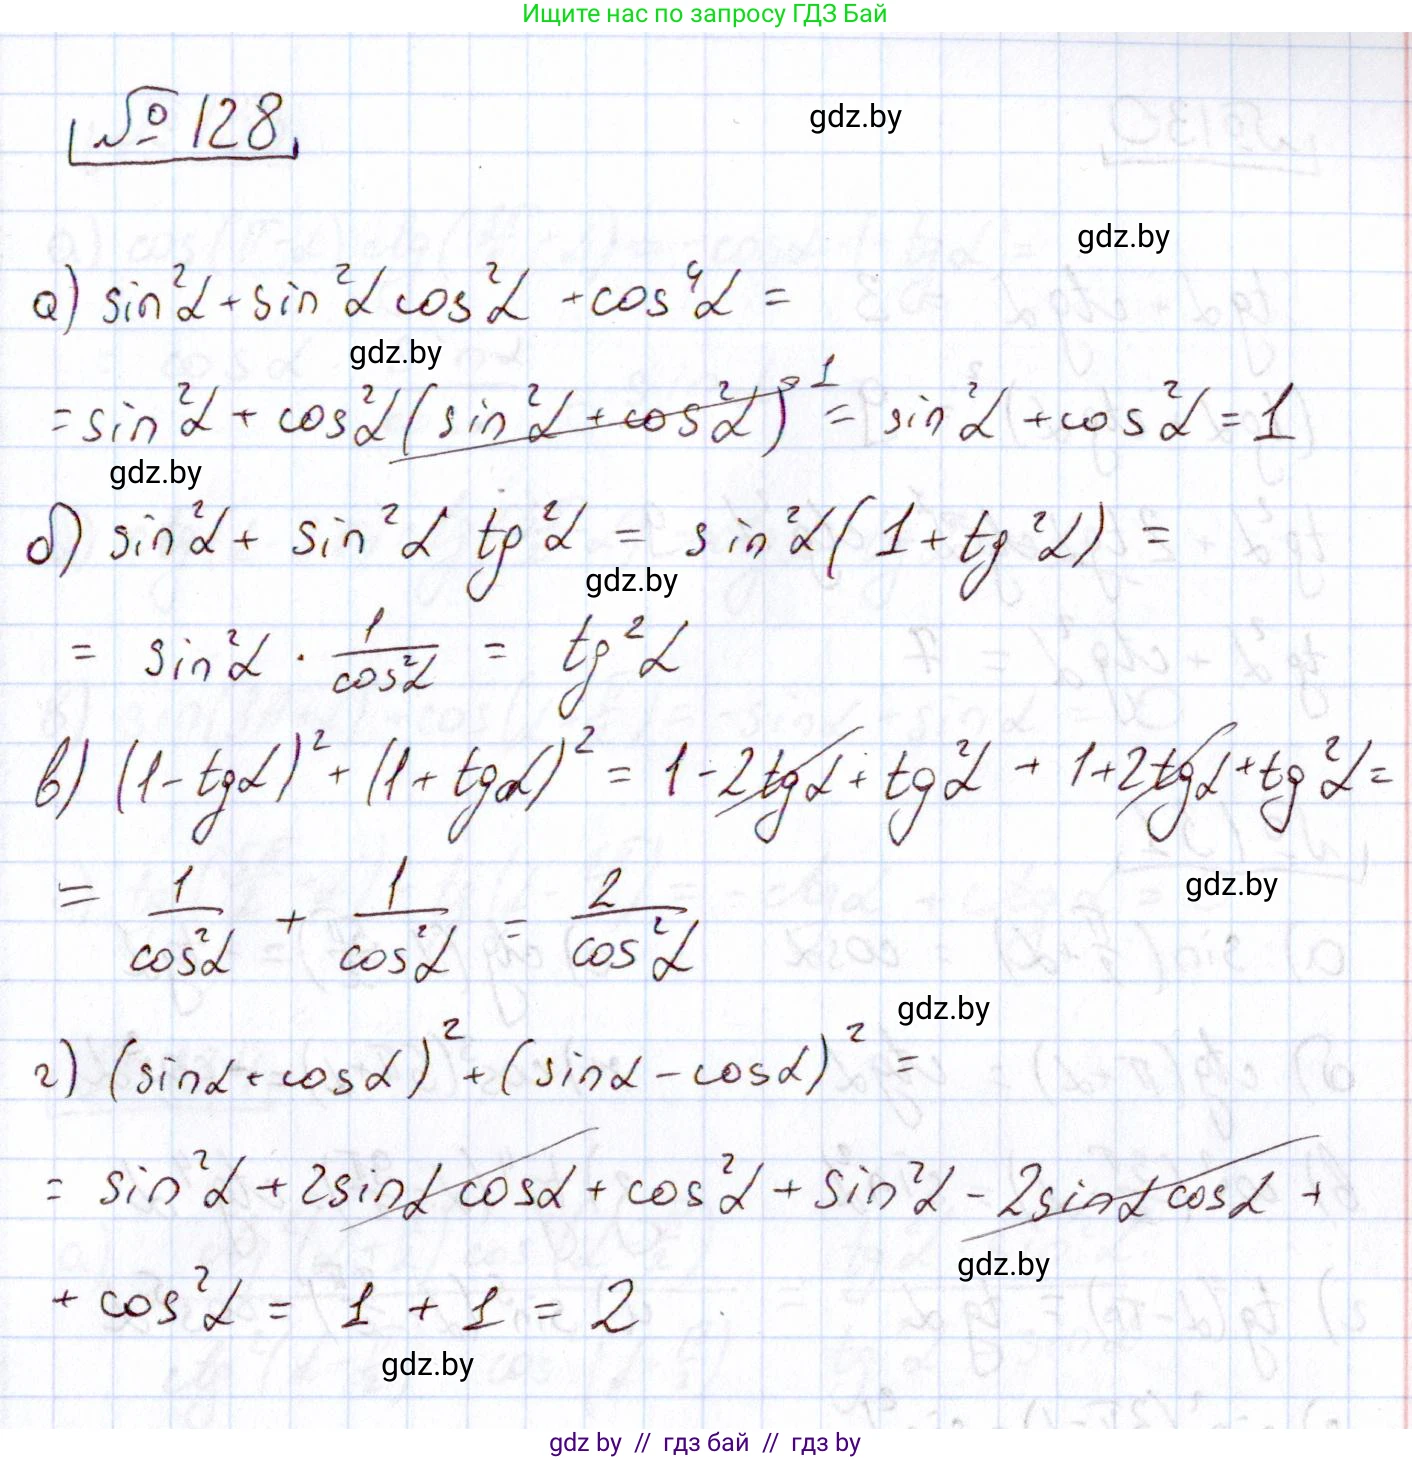 Ищите нас по запросу ГДЗ Бай
№ 128
gdz.by
gdz.by
а) sin²α + sin²α cos²α + cos⁴α =
gdz.by
= sin²α + cos²α (sin²α + cos²α)¹ = sin²α + cos²α = 1
gdz.by
б) sin²α + sin²α tg²α = sin²α (1 + tg²α) =
gdz.by
= sin²α · 1/cos²α = tg²α
в) (1 - tgα)² + (1 + tgα)² = 1 - 2tgα + tg²α + 1 + 2tgα + tg²α =
gdz.by
= 1/cos²α + 1/cos²α = 2/cos²α
gdz.by
г) (sinα + cosα)² + (sinα - cosα)² =
= sin²α + 2sinα cosα + cos²α + sin²α - 2sinα cosα +
gdz.by
+ cos²α = 1 + 1 = 2
gdz.by
gdz by // гдз бай // гдз by